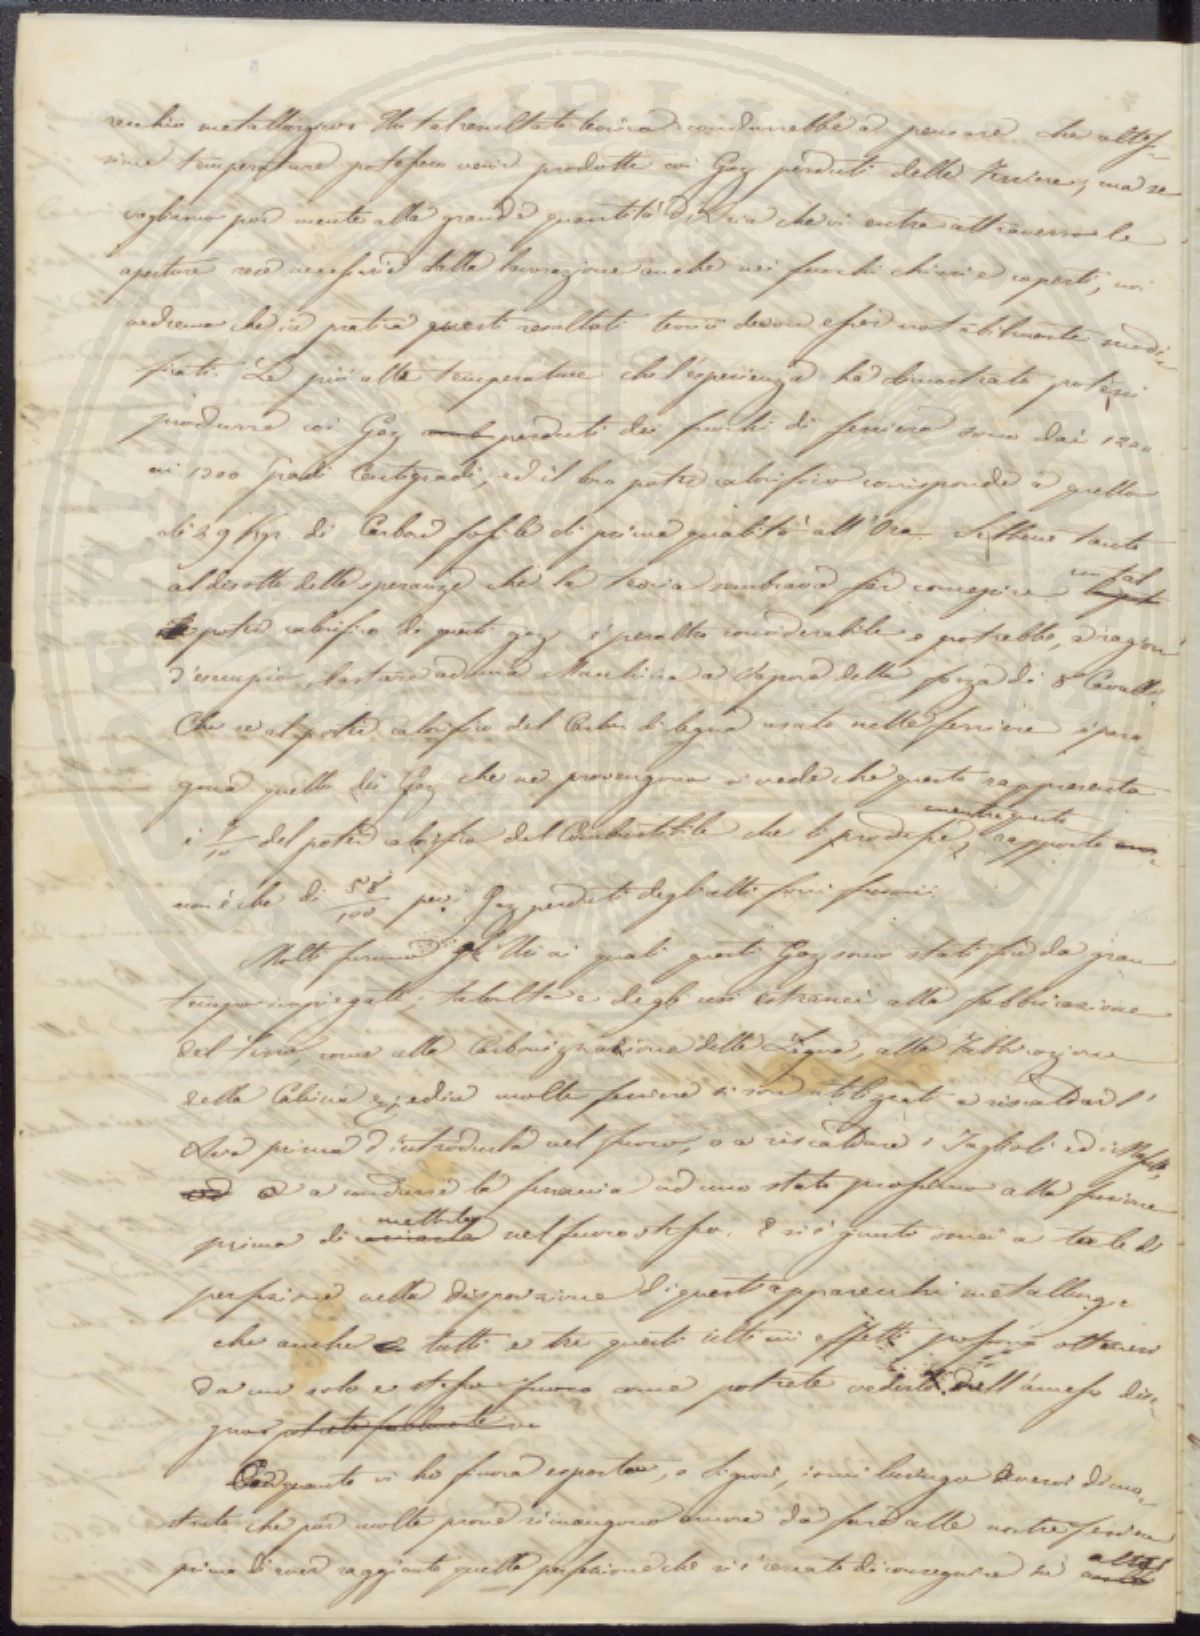 recchio metallurgico. Un tal resultato teorico condurrebbe a pensare che altis-
sime temperature potessero venir prodotte coi Gaz perduti delle Ferriere; ma se
vogliamo por mente alla grande quantità d'aria che vi entra attraverso le
aperture rese necessarie dalla lavorazione anche nei fuochi chiusi e coperti, noi
vedremo che in pratica questi resultati teorici devon esser notabilmente modi-
ficati. Le più alte temperature che l'esperienza ha dimostrato potersi
produrre coi Gaz perduti dei fuochi di ferriera sono dai 1200
ai 1300 Gradi Centigradi, ed il loro poter calorifico corrisponde a quello
di 29 Kgr. di Carbon fossile di prima qualità all'Ora. Sebbene tanto
al disotto delle speranze che la teoria sembrava far concepire un tal
poter calorifico di questi gaz è peraltro considerabile e potrebbe, a ragion
d'esempio, bastare ad una Macchina a Vapore della forza di 8 Cavalli.
Che se al poter calorifico del Carbon di legna usato nelle ferriere si para-
gona quello dei Gaz che ne provengono si vede che questo rappresenta
i /10 del poter calorifico del Combustibile che li produsse, mentre questo rapporto
non è che di 58/100 per i Gaz perduti degli alti forni fusori.
Molti furono gli Usi ai quali questi Gaz sono stati già da gran
tempo impiegati; talvolta a degli usi estranei alla fabbricazione
del ferro, come alla Carbonizzazione delle Legna, alla Fabbricazione
della Calcina; ed in molte ferriere si son utilizzati a riscaldar l'
Aria prima d'introdurla nel fuoco, o a riscaldare i Taglioli ed i Masselli,
o a condurre la ferraccia ad uno stato prossimo alla fusione
prima di metterla nel fuoco stesso. E si è giunti omai a tale di
perfezione nella disposizione di questi apparecchi metallurgi
che anche tutti e tre questi ultimi effetti possono ottenersi
da un solo e stesso fuoco come potrete vedere dall'annesso dise-
gno potrete facilmente
Da quanto vi ho finora esposto, o Signori, io mi lusingo avervi dimo-
strato che più molte prove rimangono ancora da fare alle nostre ferriere
prima di aver raggiunto quella perfezione che si è cercato di conseguire